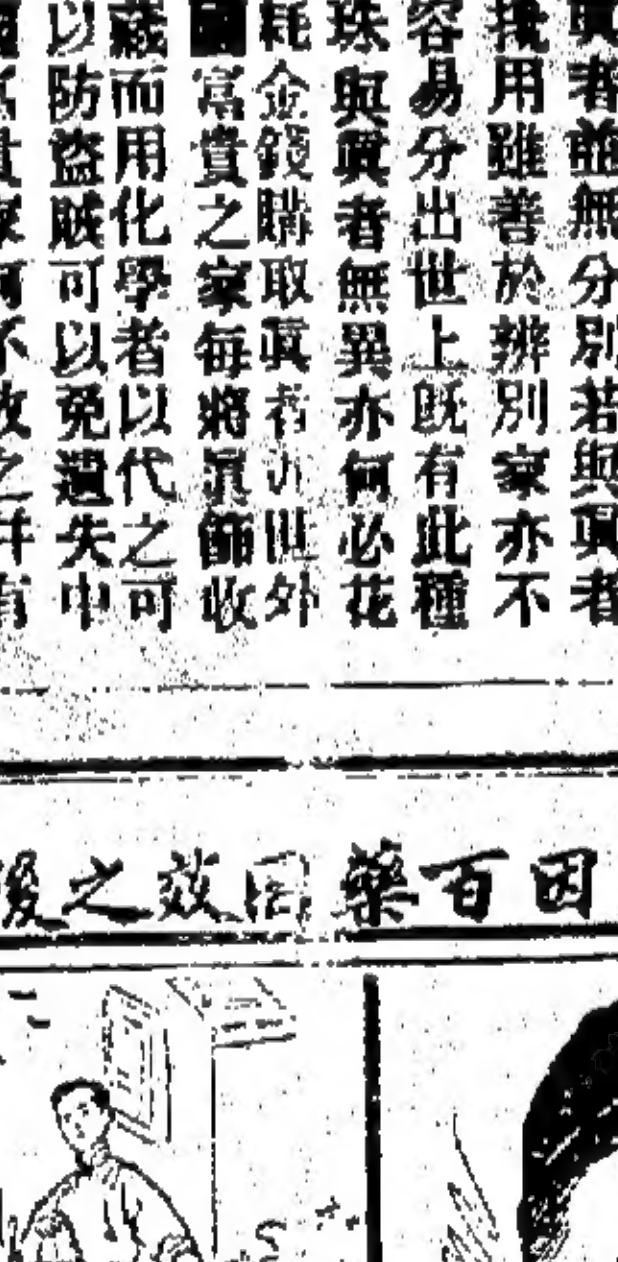 眞者並無分別若與眞者
攙用雖善於辨別家亦不
容易分出世上既有此種
珠與眞者無異亦何必花
耗金錢購取眞者乃世外
國富貴之家每將眞飾收
藏而用化學者以代之可
以防盜賊可以免遺失中
富貴家何不效之幷有
因百藥罔效之後